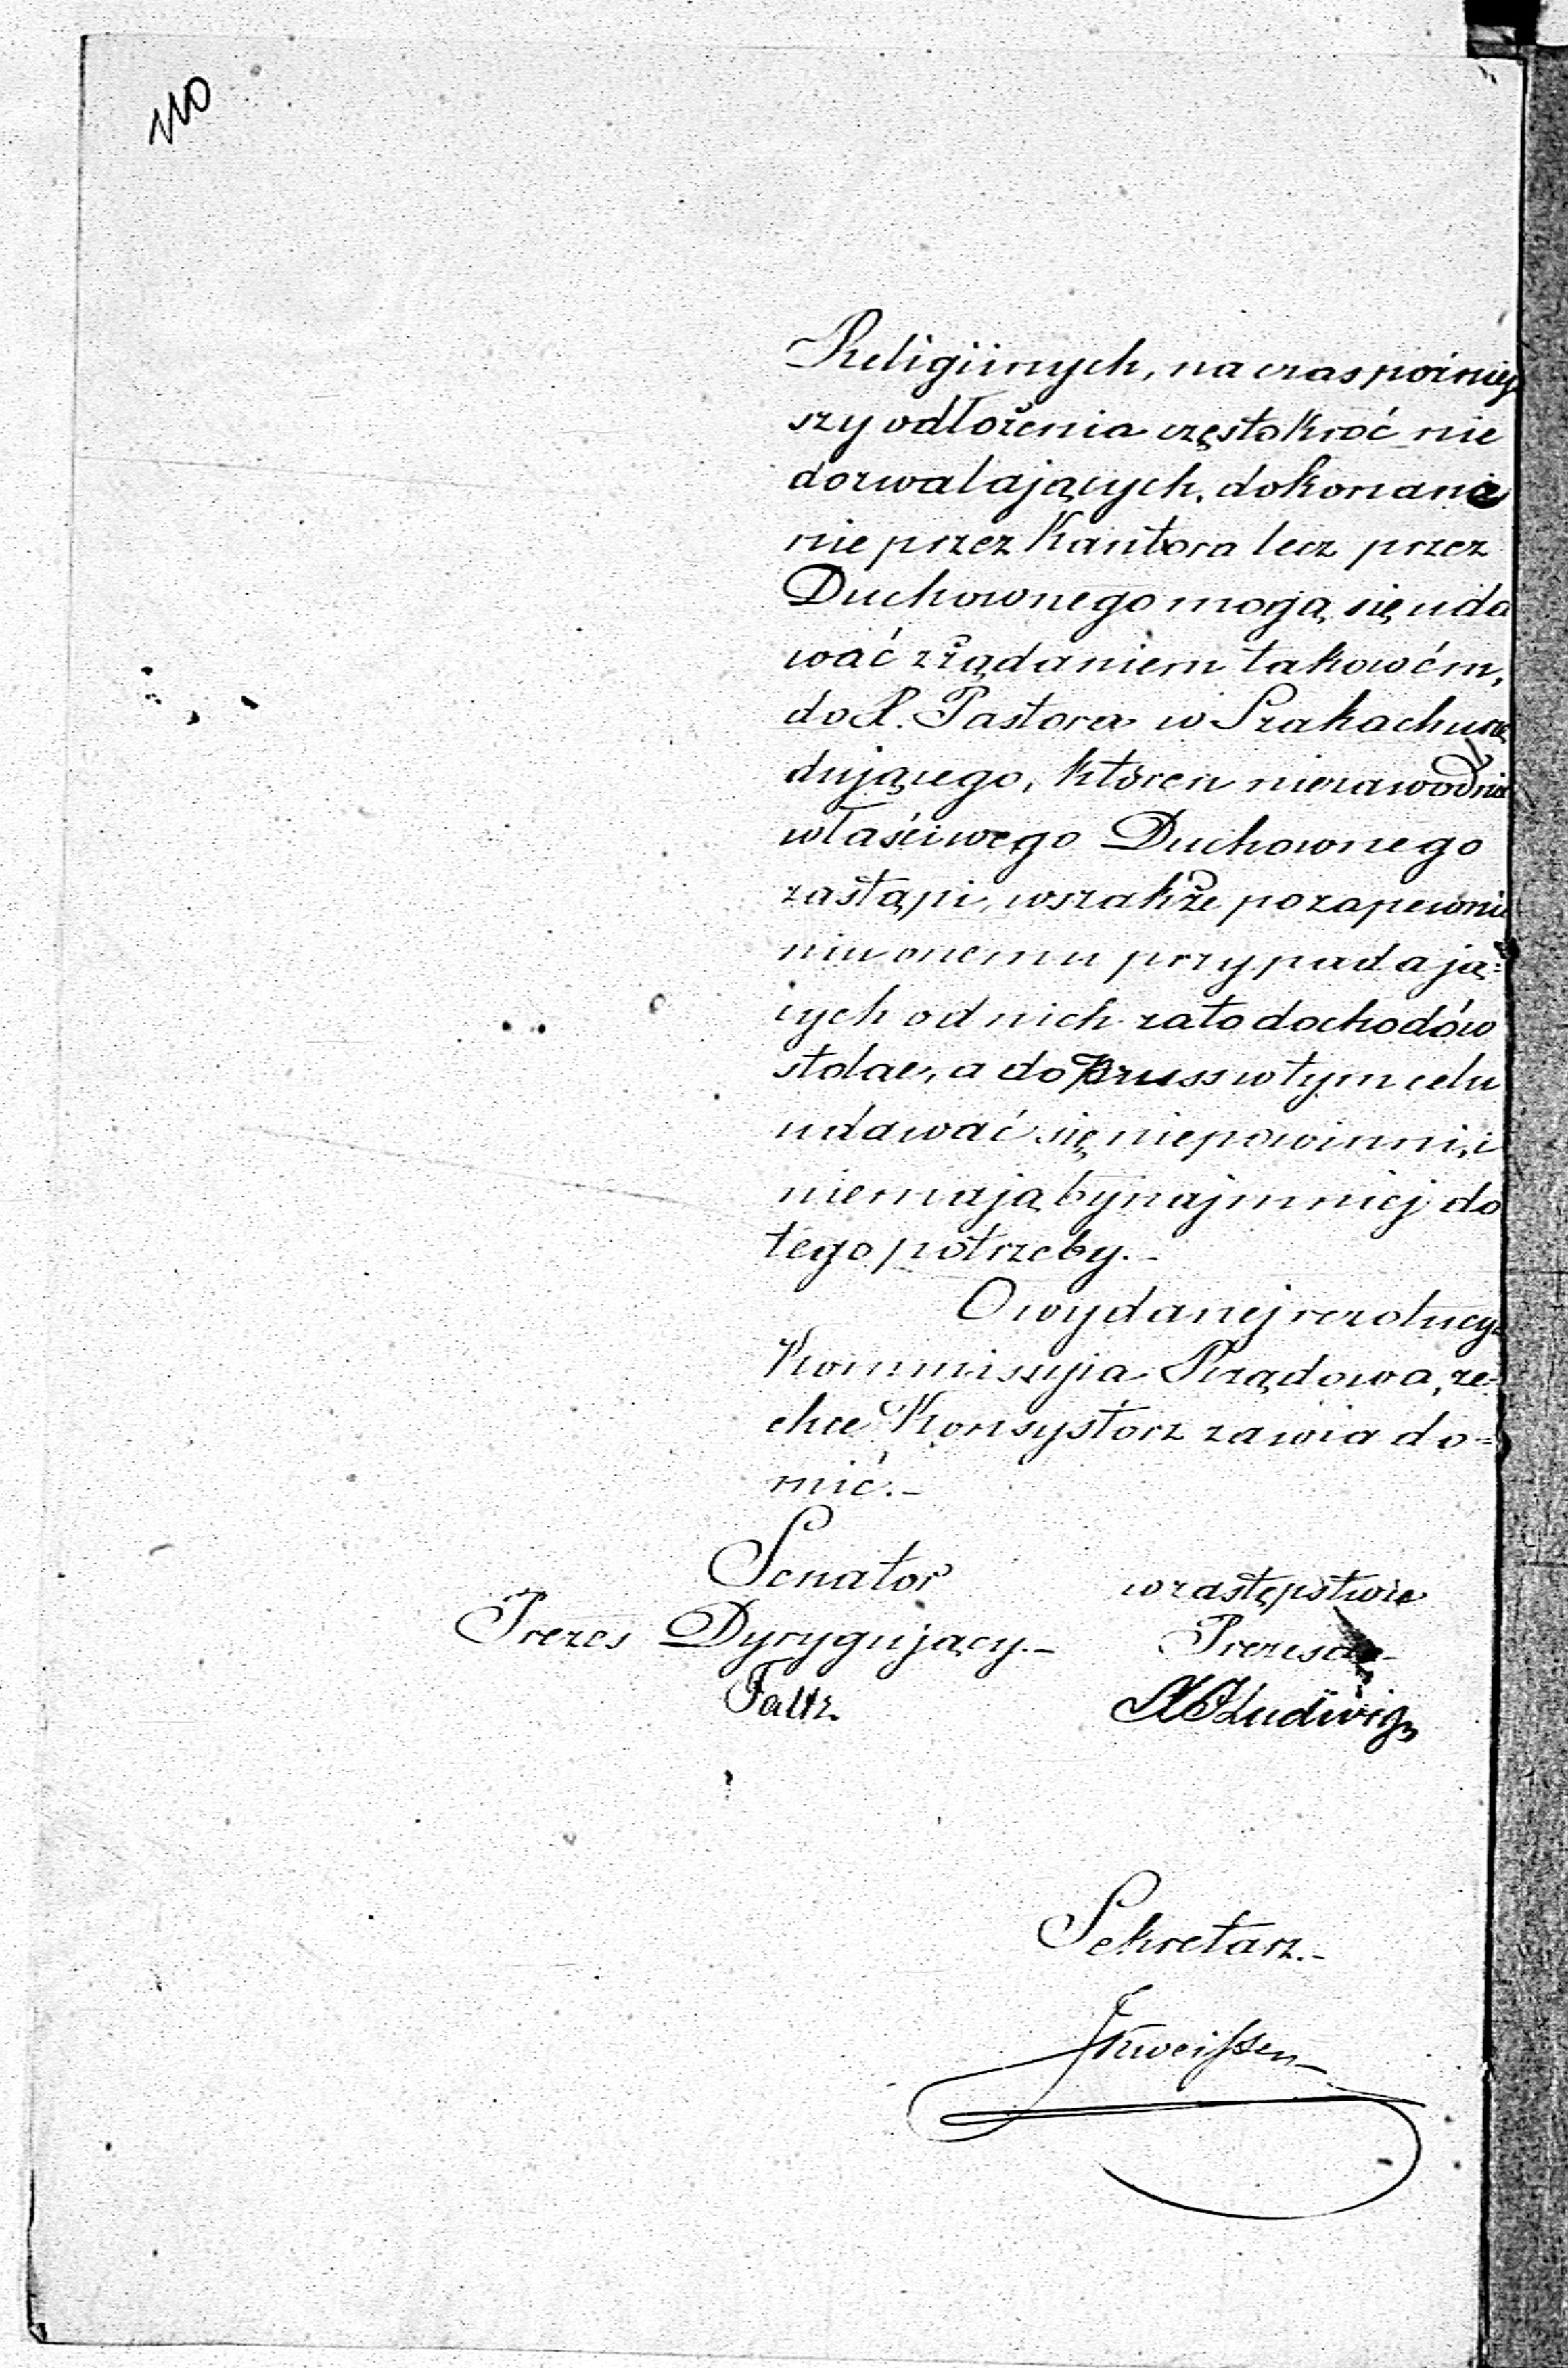 110
Religiinych, na czas poiniey
szy odłożenia częstokroć nie
dozwalających, dokonane
nie przez Kantora lecz przez
Duchownego mogą się uda
wać z żądaniem takowém,
do X. Pastora w Szakach urzę
dującego, któren niezawodnie
właściwego Duchownego
zastąpi, wszakże po zapewnie
niu onemu przypadają=
cych od nich za to dochodów
stolae, a do Pruss w tym celu
udawać się niepowinni, i
niemają bynajmniej do
tego potrzeby.-
O wydanej rezolucyi
Kommissyia Rządowa, ze=
chce Konsystorz zawiado=
mić.-
Senator w zastępstwie
Prezes Dyrygujący.- Prezesa
Faltz Ludwig
Sekretarz.-